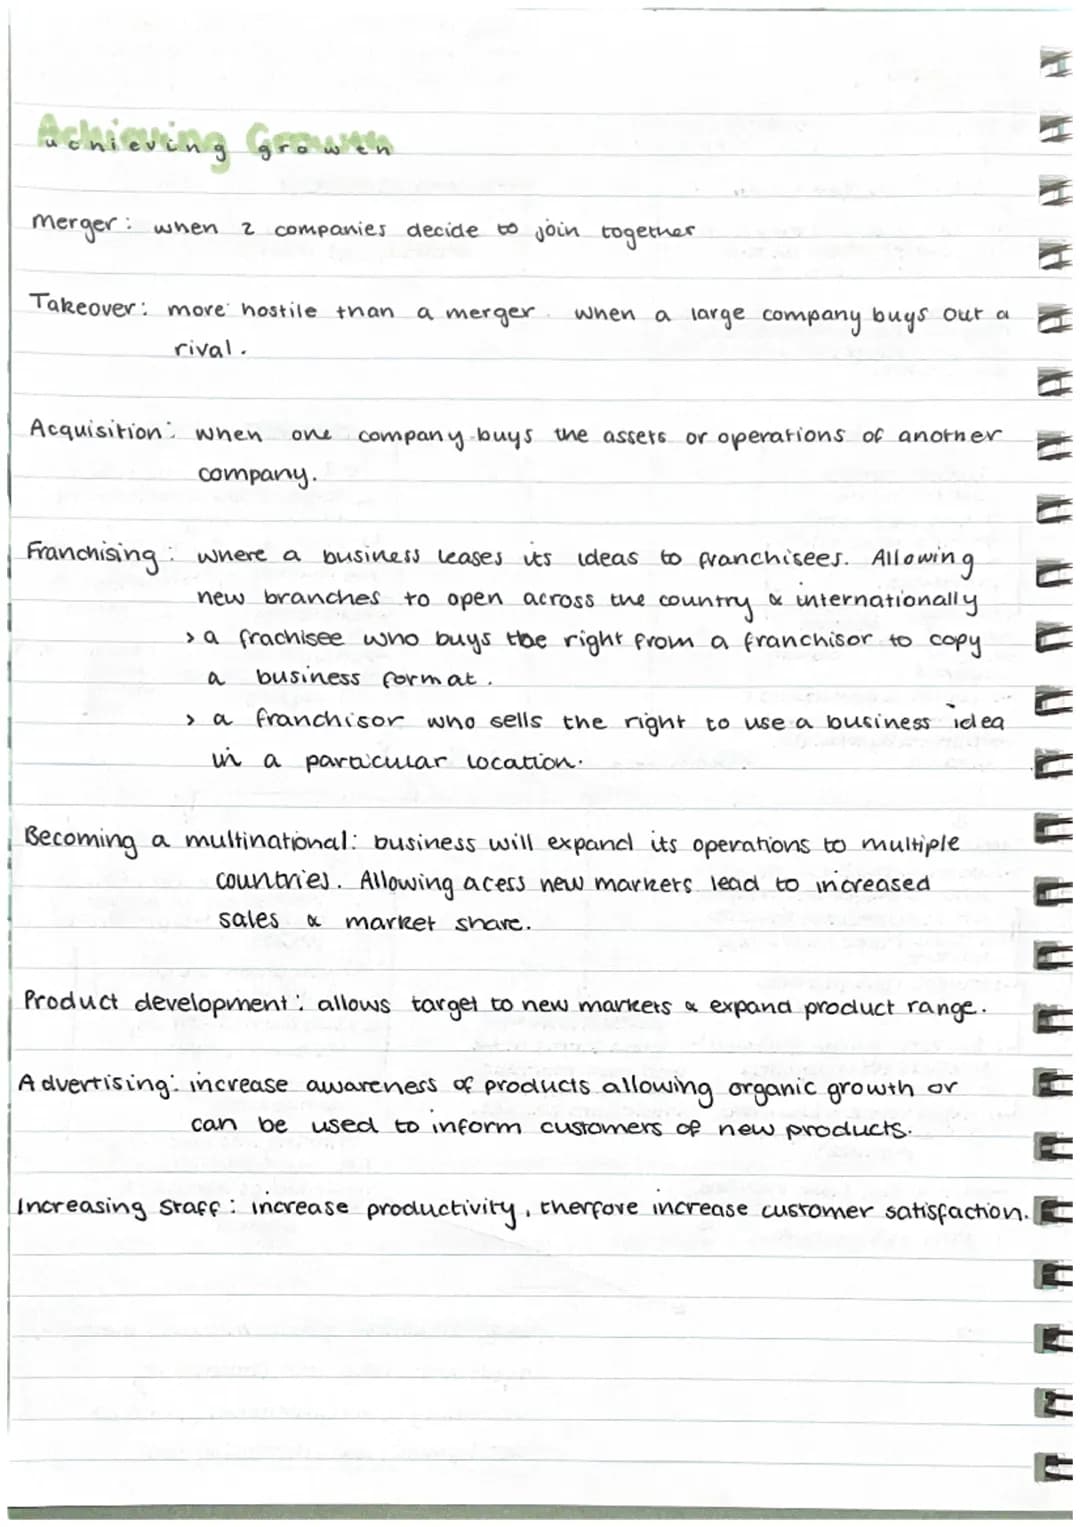 Achieving Growth
achieving growth
Merger: when 2 companies decide to join together
Takeover: more hostile than a merger. when a large company buys out a
rival.
Acquisition: when one company buys the assets or operations of another
company.
Franchising: where a business leases its ideas to franchisees. Allowing
new branches to open across the country & internationally
> a frachisee who buys the right from a franchisor to copy
a business format.
> a franchisor who sells the right to use a business idea
in a particular location.
Becoming a multinational: business will expand its operations to multiple
countries. Allowing acess new markets lead to increased
sales & market share.
Product development: allows target to new markets & expand product range.
Advertising: increase awareness of products allowing organic growth or
can be used to inform customers of new products.
Increasing Staff: increase productivity, therfore increase customer satisfaction.